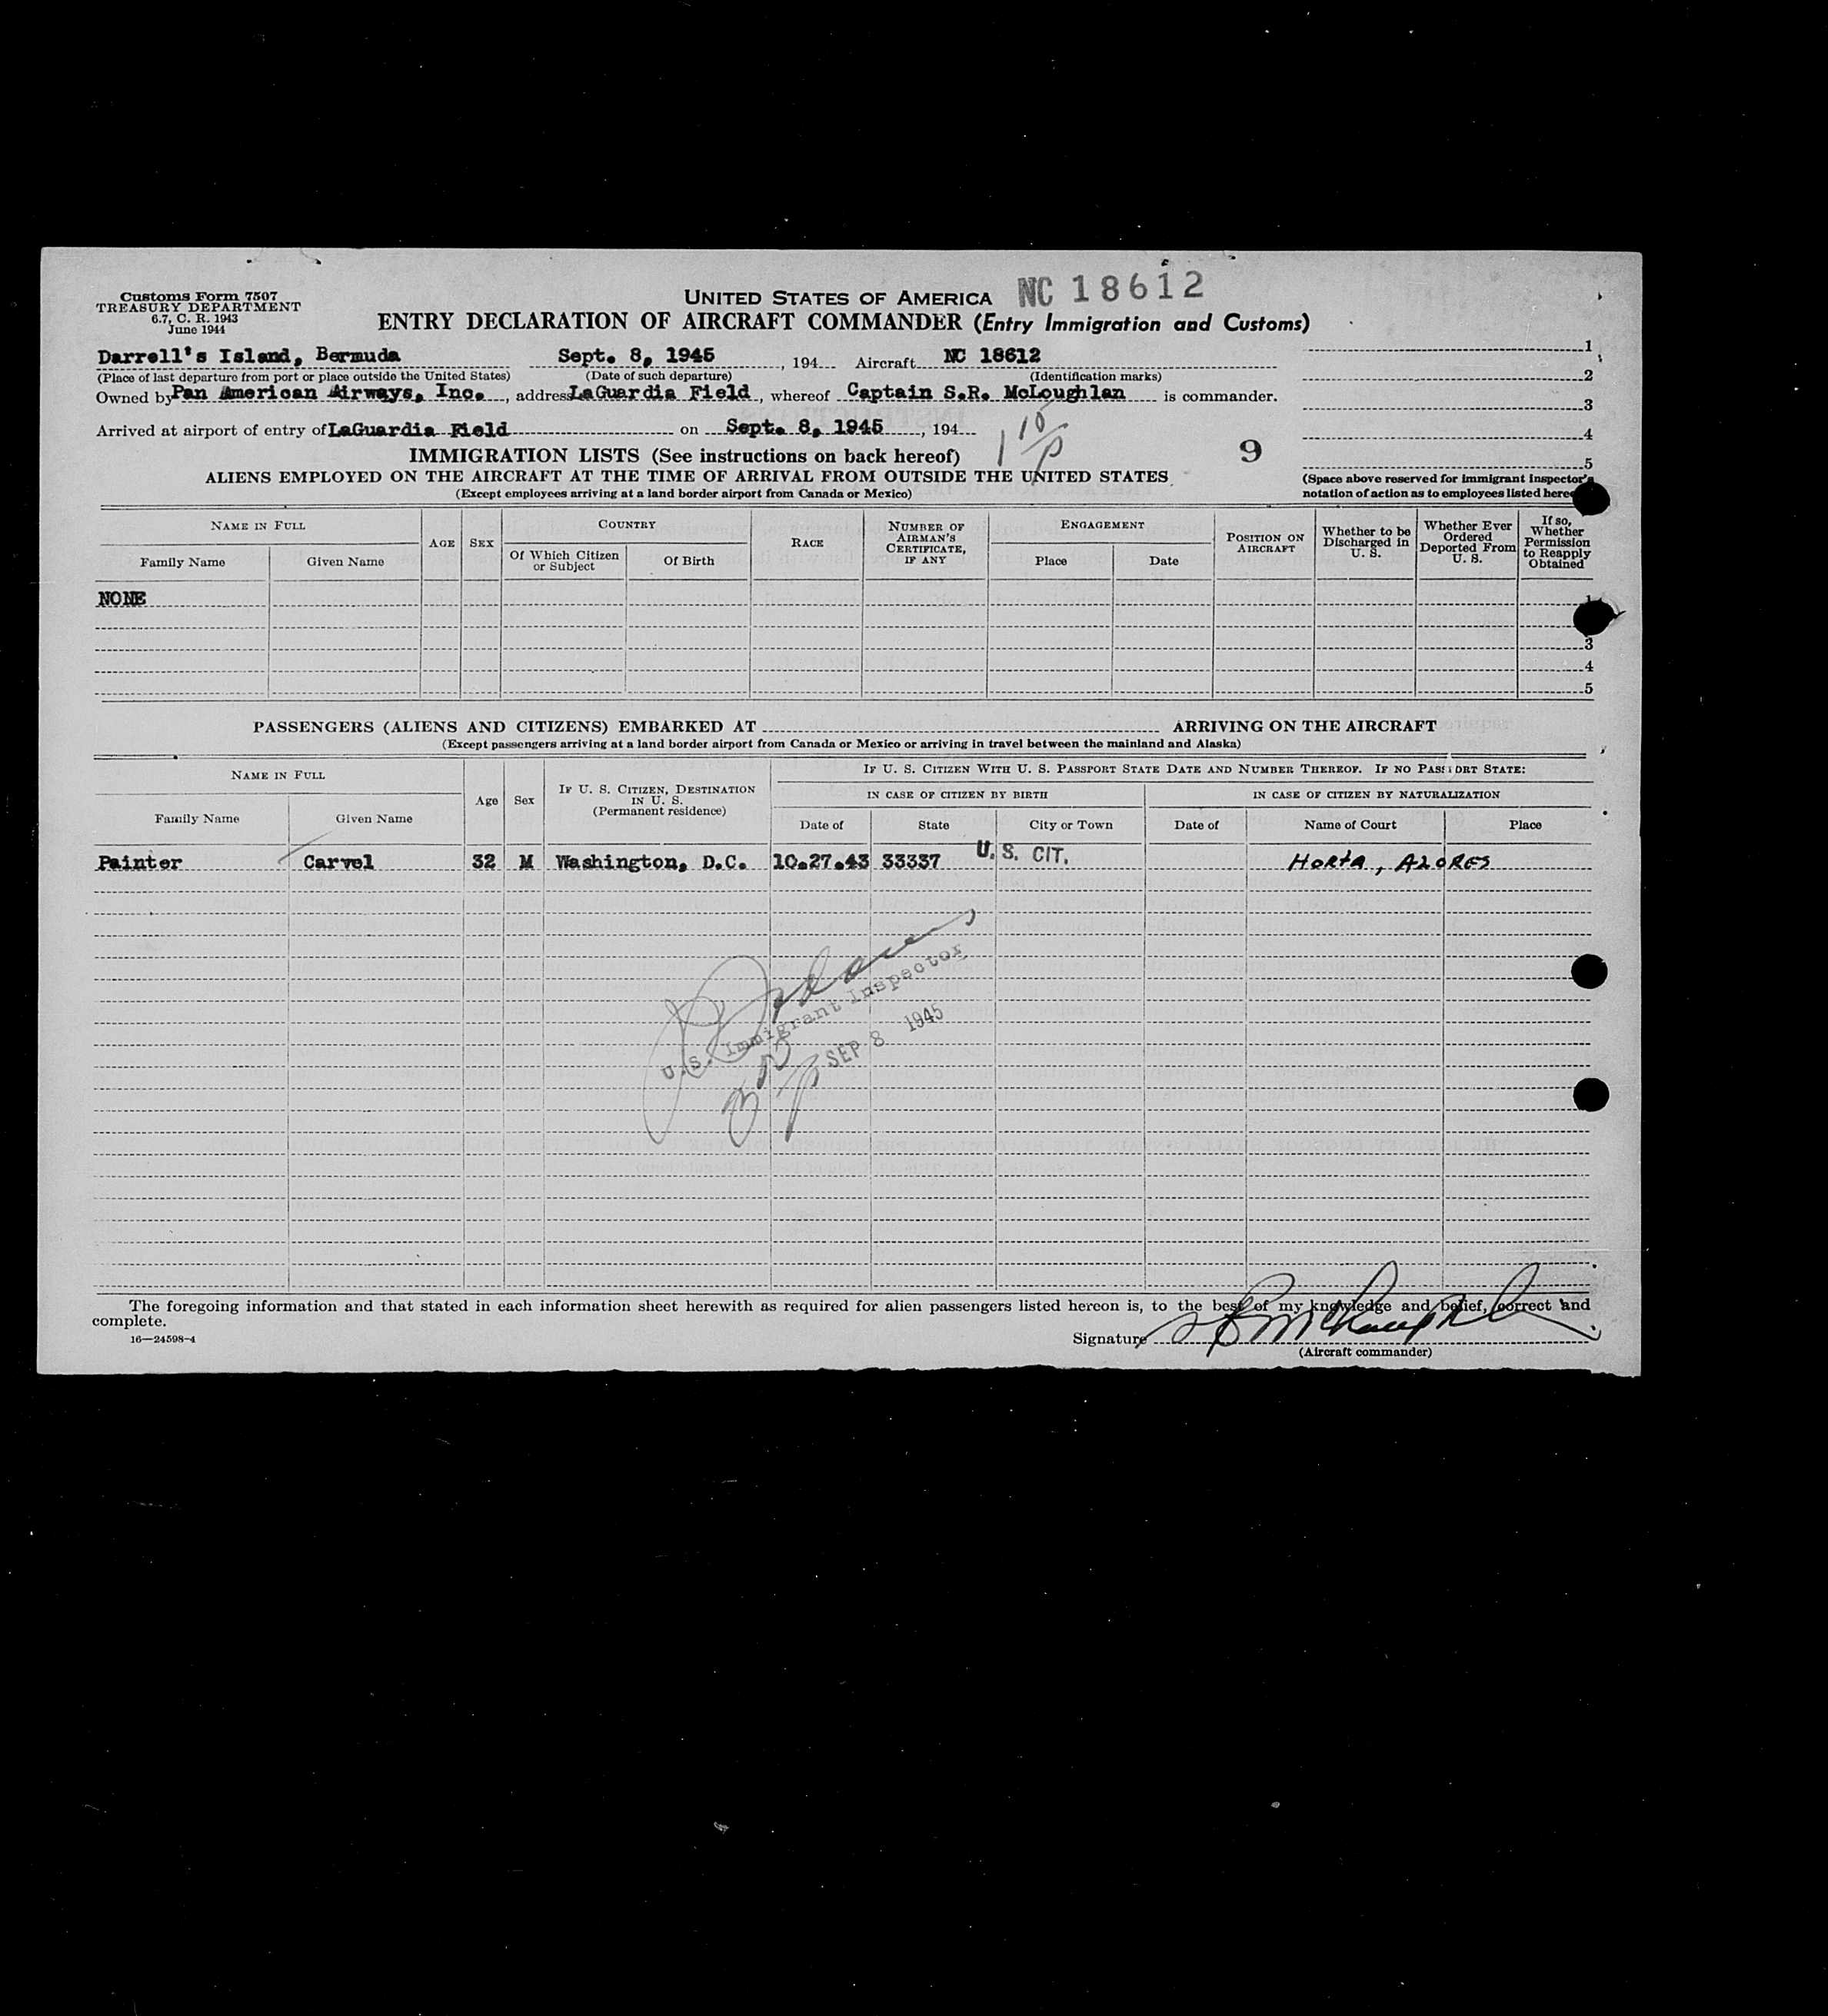 Customs Form 7507
TREASURY DEPARTMENT
6.7, C. R. 1943
June 1944
UNITED STATES OF AMERICA NC 18612
ENTRY DECLARATION OF AIRCRAFT COMMANDER (Entry Immigration and Customs)
Darrell's Island, Bermuda Sept. 8, 1945, 194 Aircraft NC 18612
(Place of last departure from port or place outside the United States) (Date of such departure) (Identification marks)
Owned by Pan American Airways, Inc., address LaGuardia Field, whereof Captain S.R. McLoughlan is commander.
Arrived at airport of entry of LaGuardia Field on Sept. 8, 1945, 194
1 10/P
9
1
2
3
4
5
(Space above reserved for Immigrant Inspector's
notation of action as to employees listed here
IMMIGRATION LISTS (See instructions on back hereof)
ALIENS EMPLOYED ON THE AIRCRAFT AT THE TIME OF ARRIVAL FROM OUTSIDE THE UNITED STATES
(Except employees arriving at a land border airport from Canada or Mexico)
NAME IN FULL
Family Name Given Name
AGE
SEX
COUNTRY
Of Which Citizen or Subject
Of Birth
RACE
NUMBER OF AIRMAN'S CERTIFICATE, IF ANY
ENGAGEMENT
Place Date
POSITION ON AIRCRAFT
Whether to be Discharged in U. S.
Whether Ever Ordered Deported From U. S.
If so, Whether Permission to Reapply Obtained
NONE 1
3
4
5
PASSENGERS (ALIENS AND CITIZENS) EMBARKED AT ARRIVING ON THE AIRCRAFT
(Except passengers arriving at a land border airport from Canada or Mexico or arriving in travel between the mainland and Alaska)
NAME IN FULL
Family Name Given Name
Age
Sex
IF U. S. CITIZEN, DESTINATION IN U. S.
(Permanent residence)
IF U. S. CITIZEN WITH U. S. PASSPORT STATE DATE AND NUMBER THEREOF. IF NO PASSPORT STATE:
IN CASE OF CITIZEN BY BIRTH IN CASE OF CITIZEN BY NATURALIZATION
Date of State City or Town Date of Name of Court Place
Painter Carvel 32 M Washington, D.C. 10.27.43 33337 U.S. CIT. HORTA, AZORES
U.S. Immigrant Inspector
SEP 8 1945
The foregoing information and that stated in each information sheet herewith as required for alien passengers listed hereon is, to the best of my knowledge and belief, correct and
complete.
16—24598-4
Signature
(Aircraft commander)